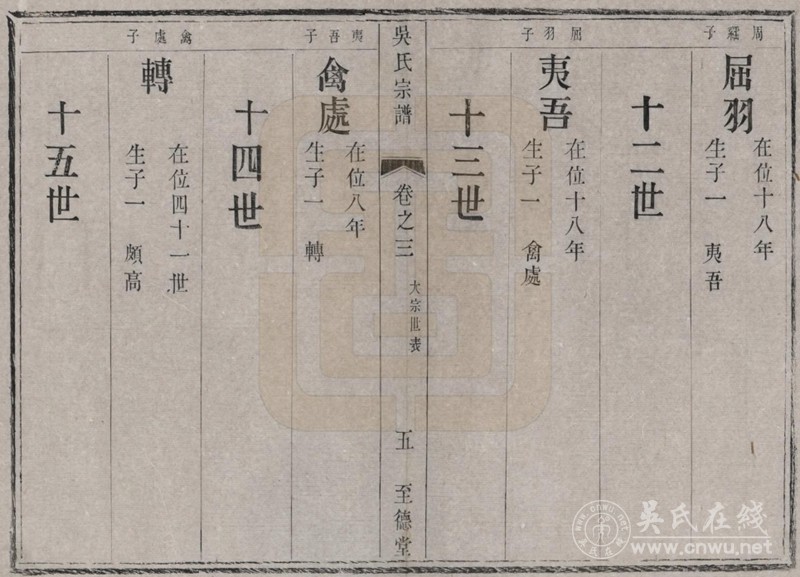 周繇子
屈羽
在位十八年
生子一 夷吾
十二世
屈羽子
夷吾
在位十八年
生子一 禽處
十三世
吳氏宗譜
卷之三
大宗世表
五
至德堂
夷吾子
禽處
在位八年
生子一 轉
十四世
禽處子
轉
在位四十一世
生子一 頗高
十五世
吴氏在线
www.cnwu.net